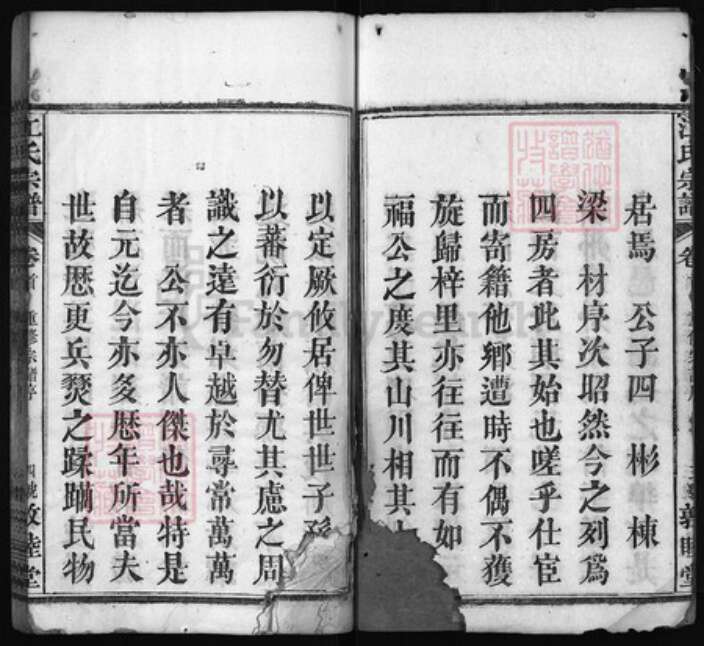 江氏宗譜
卷首
敦睦堂
居焉 公子四 彬 棟
梁 材序次昭然今之列為
四房者此其始也嗟乎仕宦
而寄籍他鄉遭時不偶不獲
旋歸梓里亦往往而有如
福公之度其山川相其
以定厥攸居俾世世子孫
以蕃衍於勿替尤其慮之周
識之遠有卓越於尋常萬萬
者 公不亦人傑也哉特是
自元迄今亦多歷年所當夫
世故歷更兵燹之蹂躪民物
江氏宗譜
卷首
重修宗譜序
四號
敦睦堂
FamilySearch